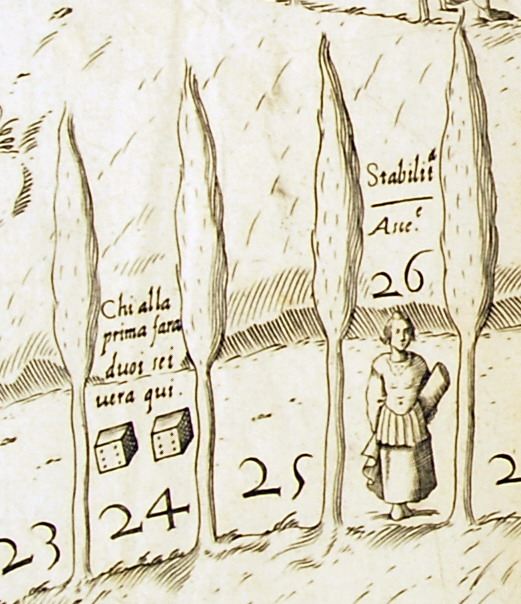 Stabilit.ª
Ave.ᵉ
26
Chi alla
prima fara
duoi sei
uera qui.
25
24
23
2